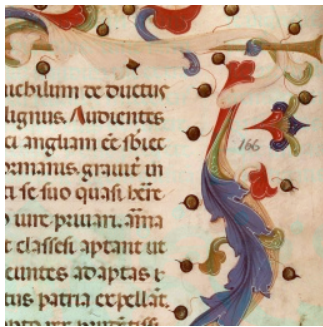 uebilum de ductus
lignus. Audientes
ci angliam eē sbiec
ormanis. grauit in
ti se suo quasi
iure priuari.
t classesi aptant ut
euntes adaptas
tus patria expellāt.
166